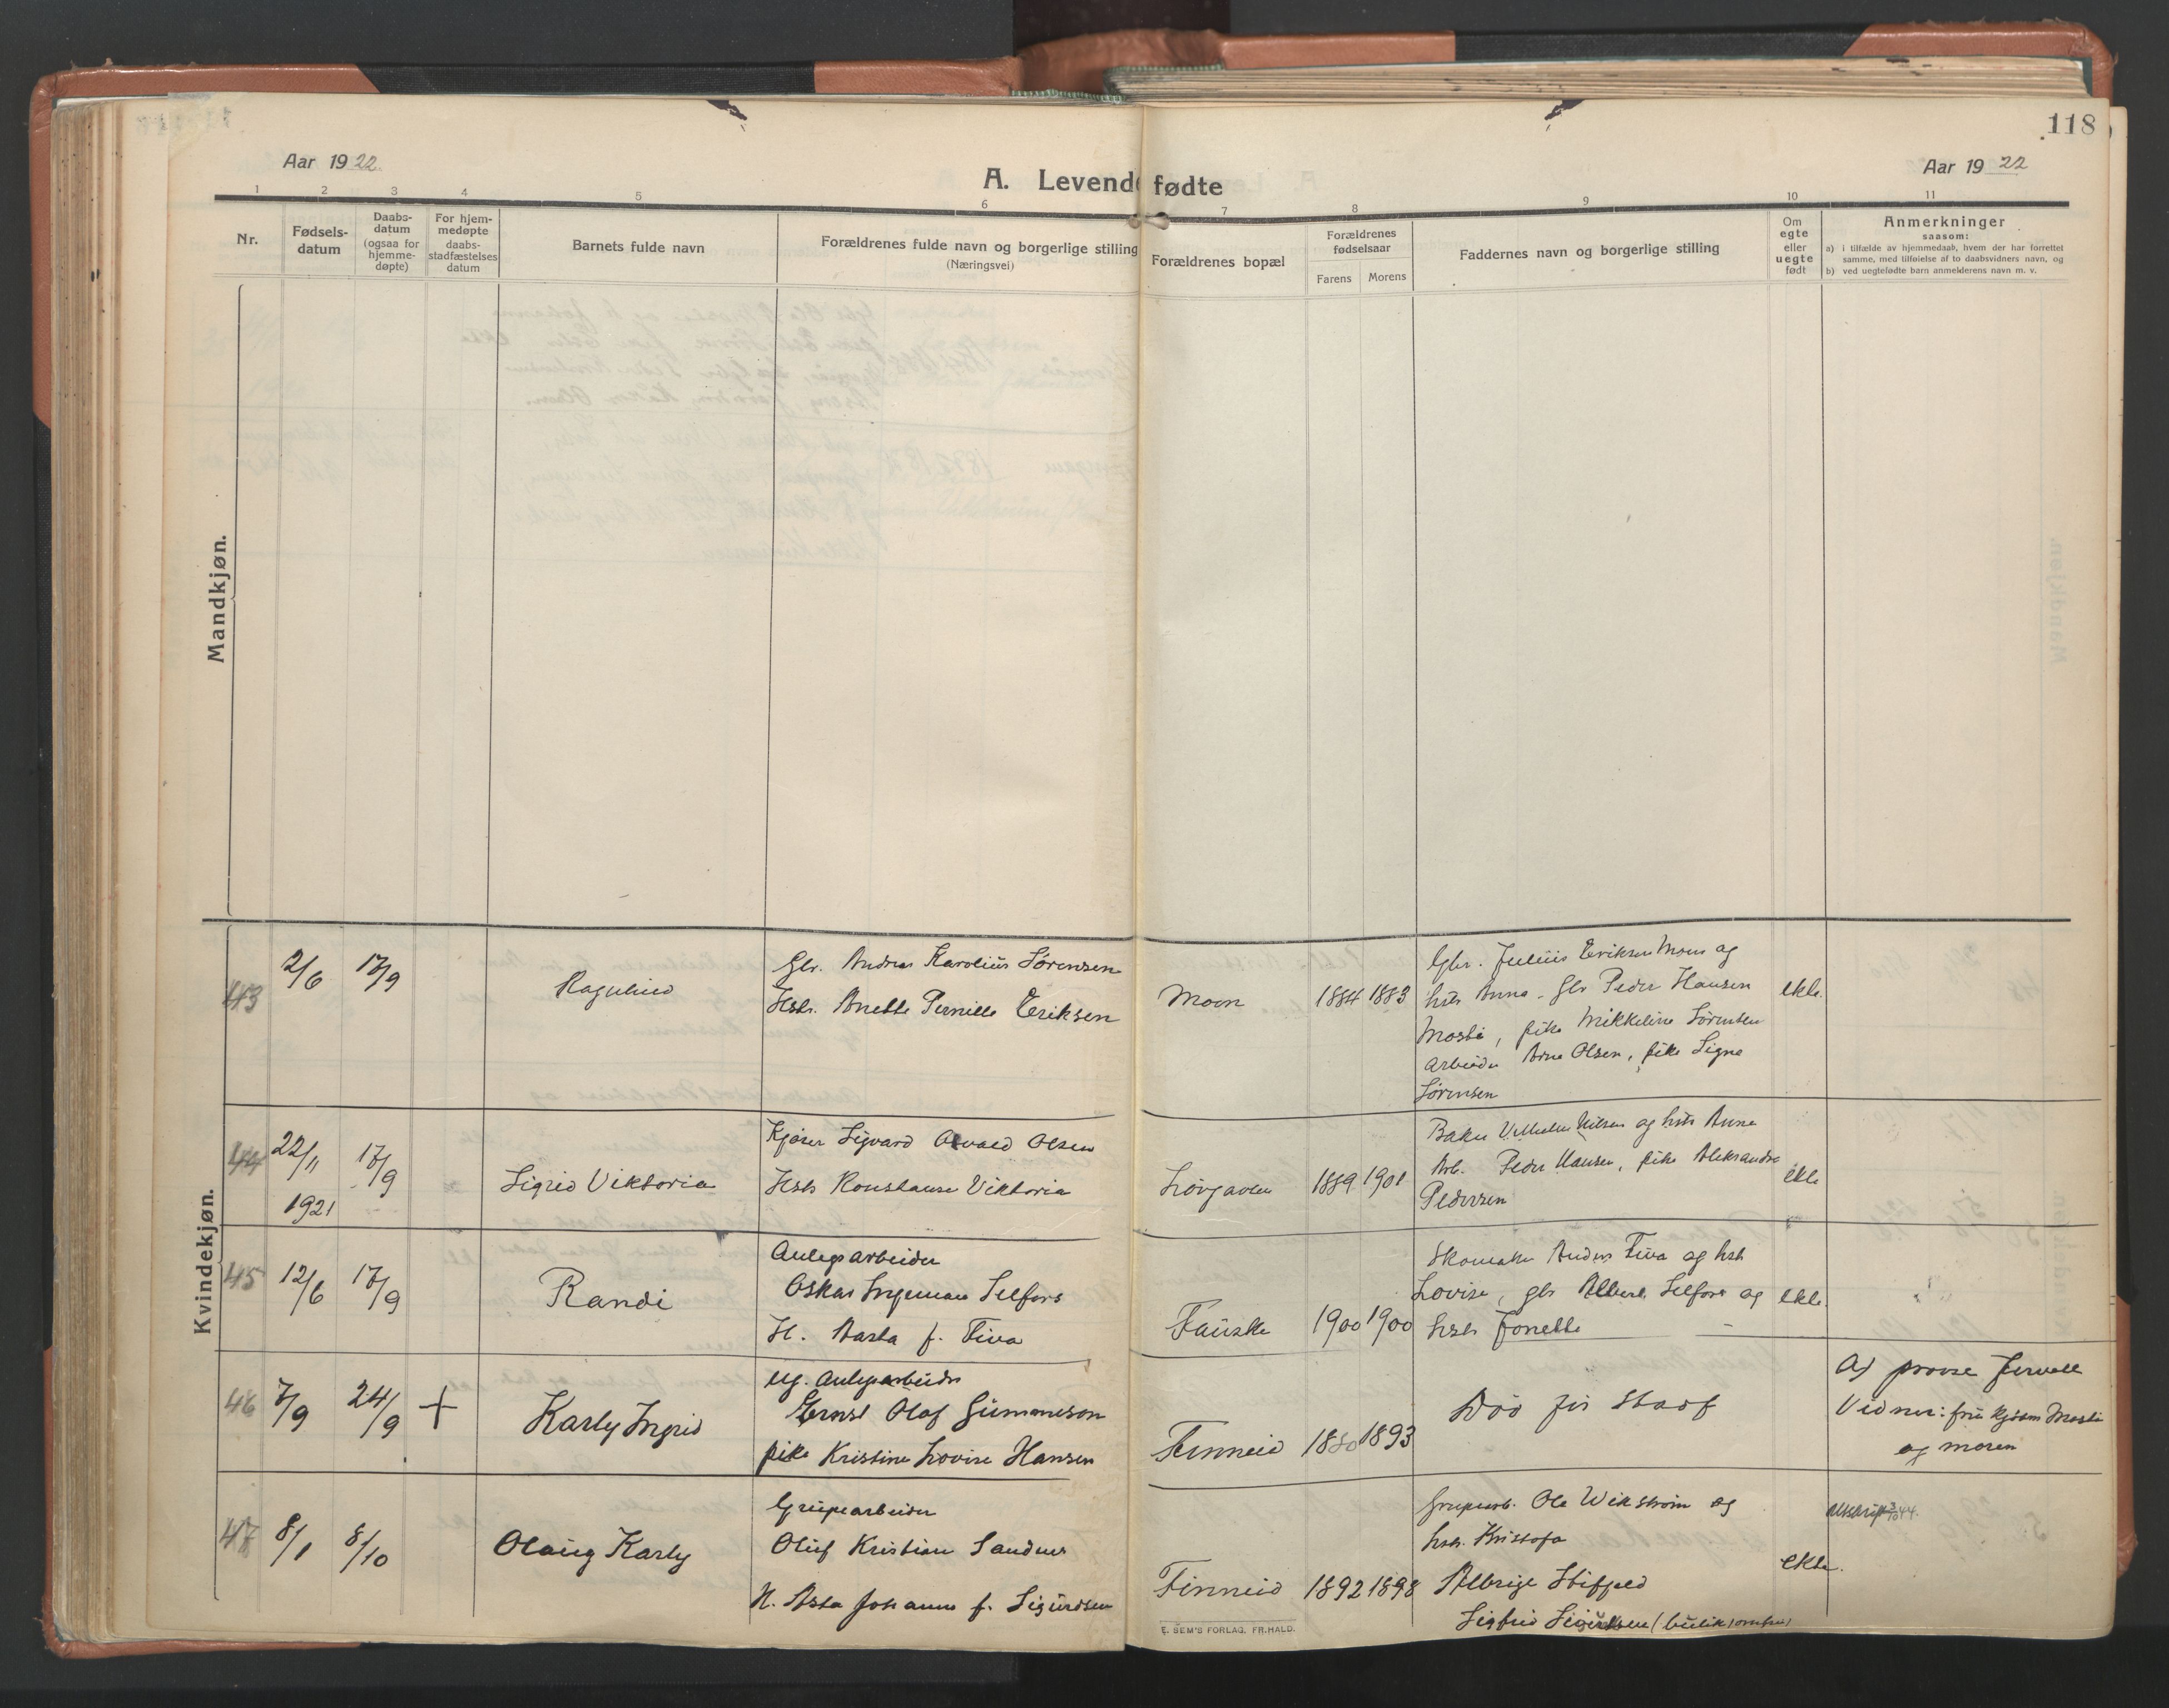 118
Aar 1922.
Aar 1922
A. Levende fødte
1 2 3 4 5 6 7 8 9 10 11
Nr.
Fødsels-
datum
Daabs-
datum
(ogsaa for
hjemme-
døpte)
For hjem-
medøpte
daabs-
stadfæstelses
datum
Barnets fulde navn
Forældrenes fulde navn og borgerlige stilling
(Næringsvei)
Forældrenes bopæl
Forældrenes
fødselsaar
Farens Morens
Faddernes navn og borgerlige stilling
Om
egte
eller
uegte
født
Anmerkninger
saasom:
a) i tilfælde av hjemmedaab, hvem der har forrettet
samme, med tilføielse af to daabsvidners navn, og
b) ved uegtefødte barn anmelderens navn m. v.
Mandkjøn.
Kvindekjøn.
43
2/6
17/9
Ragnhild
Gbr. Andreas Karolius Sörensen
Hstr. Anette Pernille Eriksen
Moen
1884 1883
Gbr. Julius Eriksen Moen og
hstr Anna - Gbr Peder Hansen
Mosti, pike Mikkeline Sörensen
arbeider Arne Olsen, pike Signe
Sörensen
ekte.
44
22/11
1921
17/9
Sigrid Viktoria
Kjører Sigvard Osvald Olsen
Hstr Konstanse Viktoria
Lövgavlen
1889 1901
Baker Vilhelm Nilsen og hstr Anna
Arb. Peder Hansen, pike Aleksandra
Pedersen
ekte
45
12/6
17/9
Randi
Anlegsarbeider
Oskar Ingeman Selfors
H. Aasta f. Tiva
Fauske
1900 1900
Skomaker Anders Tiva og hstr
Lovise, gbr Albert Selfors og
hstr Jonette
ekte.
46
7/9
24/9
+
Karly Ingrid
ug. Anlegsarbeider
Ernst Olaf Gummeson
pike Kristine Lovise Hansen
Finneid
1880 1893
Död för Stadf
a) provse Jervell
Vidner: fru Mosti
og moren
47
8/1
8/10
Olaug Karly
Grubearbeider
Oluf Kristian Sandnes
H. Asta Johanne f. Sigurdsen
Finneid
1892 1898
Grubearb. Ole Wikström og
hstr. Kristofa
Albrigt Stifjeld
Sigfrid Sigurdsen (butikjomfru)
ekte.
Utskrift 3/10 44.
E. SEM'S FORLAG, FR.HALD.